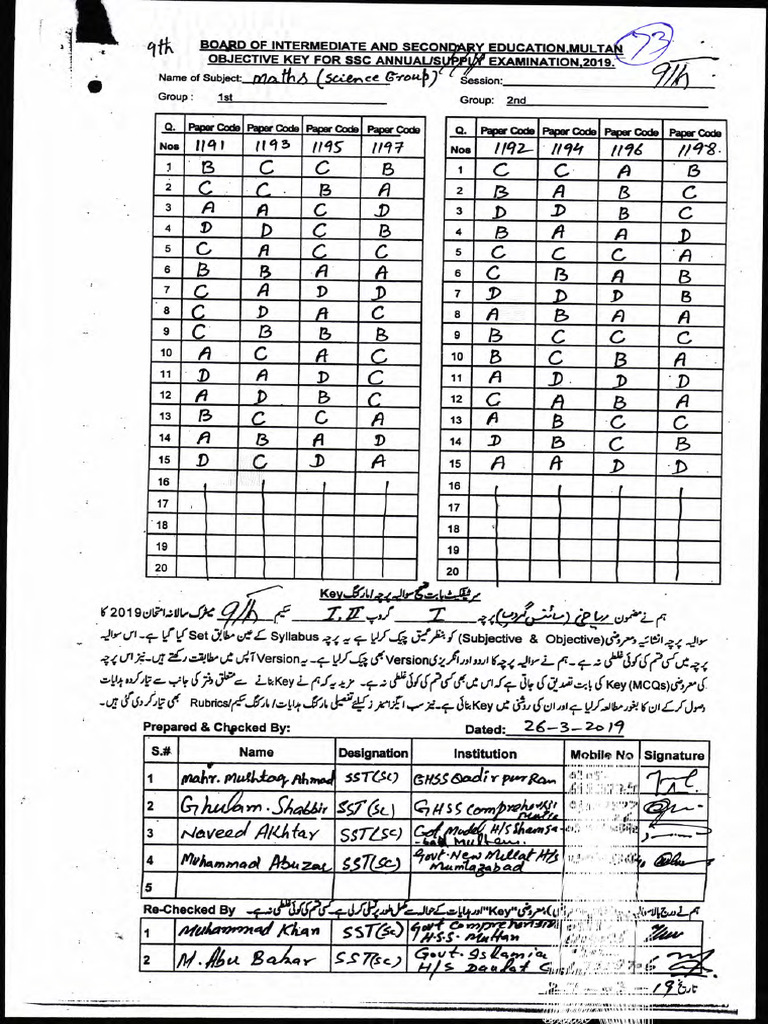 9th BOARD OF INTERMEDIATE AND SECONDARY EDUCATION,MULTAN 73
OBJECTIVE KEY FOR SSC ANNUAL/SUPPLY EXAMINATION,2019.
Name of Subject: Maths (Science Group) Session: 9th
Group : 1st Group: 2nd
Q. Paper Code Paper Code Paper Code Paper Code Q. Paper Code Paper Code Paper Code Paper Code
Nos 1191 1193 1195 1197 Nos 1192 1194 1196 1198
1 B C C B 1 C C A B
2 C C B A 2 B A B C
3 A A C D 3 D D B C
4 D D C B 4 B A A D
5 C A C C 5 C C C A
6 B B A A 6 C B A B
7 C A D D 7 D D D B
8 C D A C 8 A B A A
9 C B B B 9 B C C C
10 A C A C 10 B C B A
11 D A D C 11 A D D D
12 A D B C 12 C A B A
13 B C C A 13 A B C C
14 A B A D 14 D B C B
15 D C D A 15 A A D D
16 16
17 17
18 18
19 19
20 20
ہم نے مضمون ریاضی (سائنس گروپ) پرچہ I گروپ I, II سکیم 9th میٹرک سالانہ امتحان 2019 کا
سوالیہ پرچہ انشائیہ و معروضی (Subjective & Objective) کو بنظر عمیق چیک کر لیا ہے یہ پرچہ Syllabus کے عین مطابق Set کیا گیا ہے۔ اس سوالیہ
پرچہ میں کسی قسم کی کوئی غلطی نہ ہے۔ ہم نے سوالیہ پرچہ کا اردو اور انگریزی Version بھی چیک کر لیا ہے۔ یہ Version آپس میں مطابقت رکھتے ہیں۔ نیز اس پرچہ
کی معروضی (MCQs) Key کی بابت تصدیق کی جاتی ہے کہ اس میں بھی کسی قسم کی کوئی غلطی نہ ہے۔ مزید یہ کہ ہم نے Key بنانے سے متعلق دفتر کی جانب سے تیار کردہ ہدایات
وصول کر کے ان کا بغور مطالعہ کر لیا ہے اور ان کی روشنی میں Key بنائی ہے۔ نیز سب ایگزامینرز کیلئے تفصیلی مارکنگ ہدایات/مارکنگ سکیم/Rubrics بھی تیار کر دی گئی ہیں۔
Prepared & Checked By: Dated: 26-3-2019
S.# Name Designation Institution Mobile No Signature
1 Mahr. Mushtaq Ahmad SST(SC) GHSS Qadirpur Ran
2 Ghulam Shabbir SST(SC) GHSS Comprehensive
3 Naveed Akhtar SST(SC) Govt Model H/S Shamsabad Multan
4 Muhammad Abuzar SST(SC) Govt. New Millat H/S Mumtazabad
5
Re-Checked By
1 Muhammad Khan SST(SC) Govt Comprehensive H.S.S. Multan
2 M. Abu Bakar SST(SC) Govt. Islamia H/S Daulat G